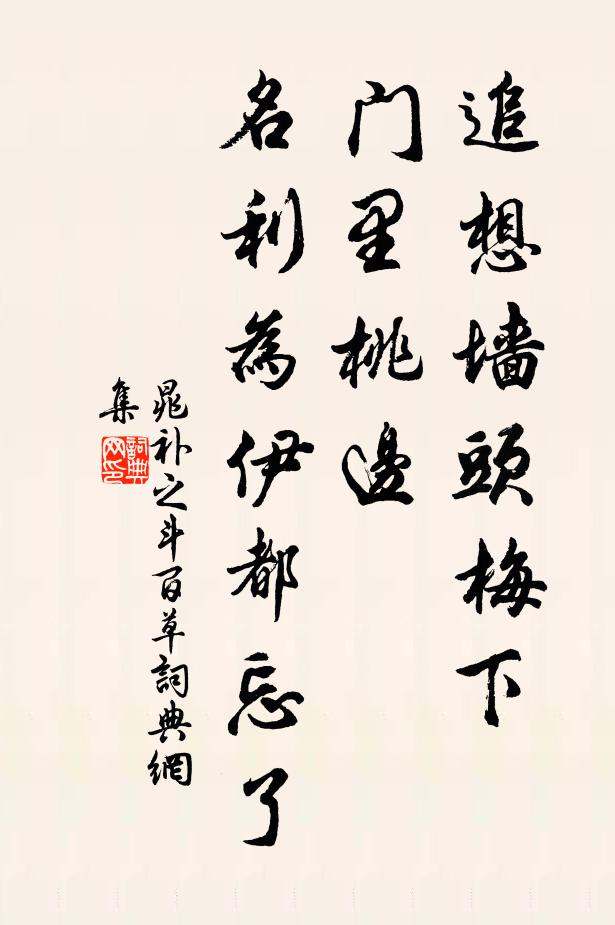 追想墙頭梅下
门里桃邊
名利為伊都忘了
晁补之斗百草詞典網
集
詞典
网印